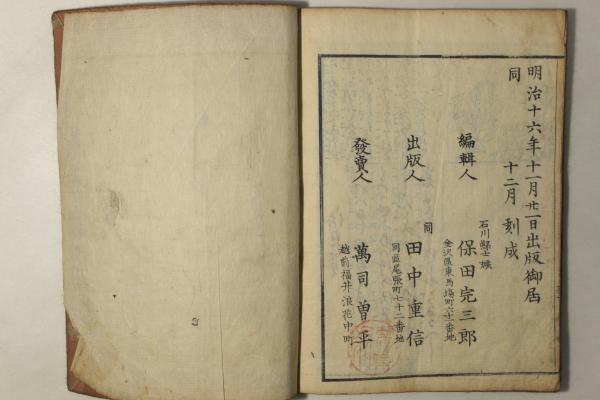 明治十六年十一月廿一日出版御届
同 十二月 刻成
編輯人 石川縣士族 保田完三郎
金沢區東馬塲町六十一番地
出版人 同 田中重信
同區尾張町七十二番地
發賣人 萬司曽平
越前福井浪花中町